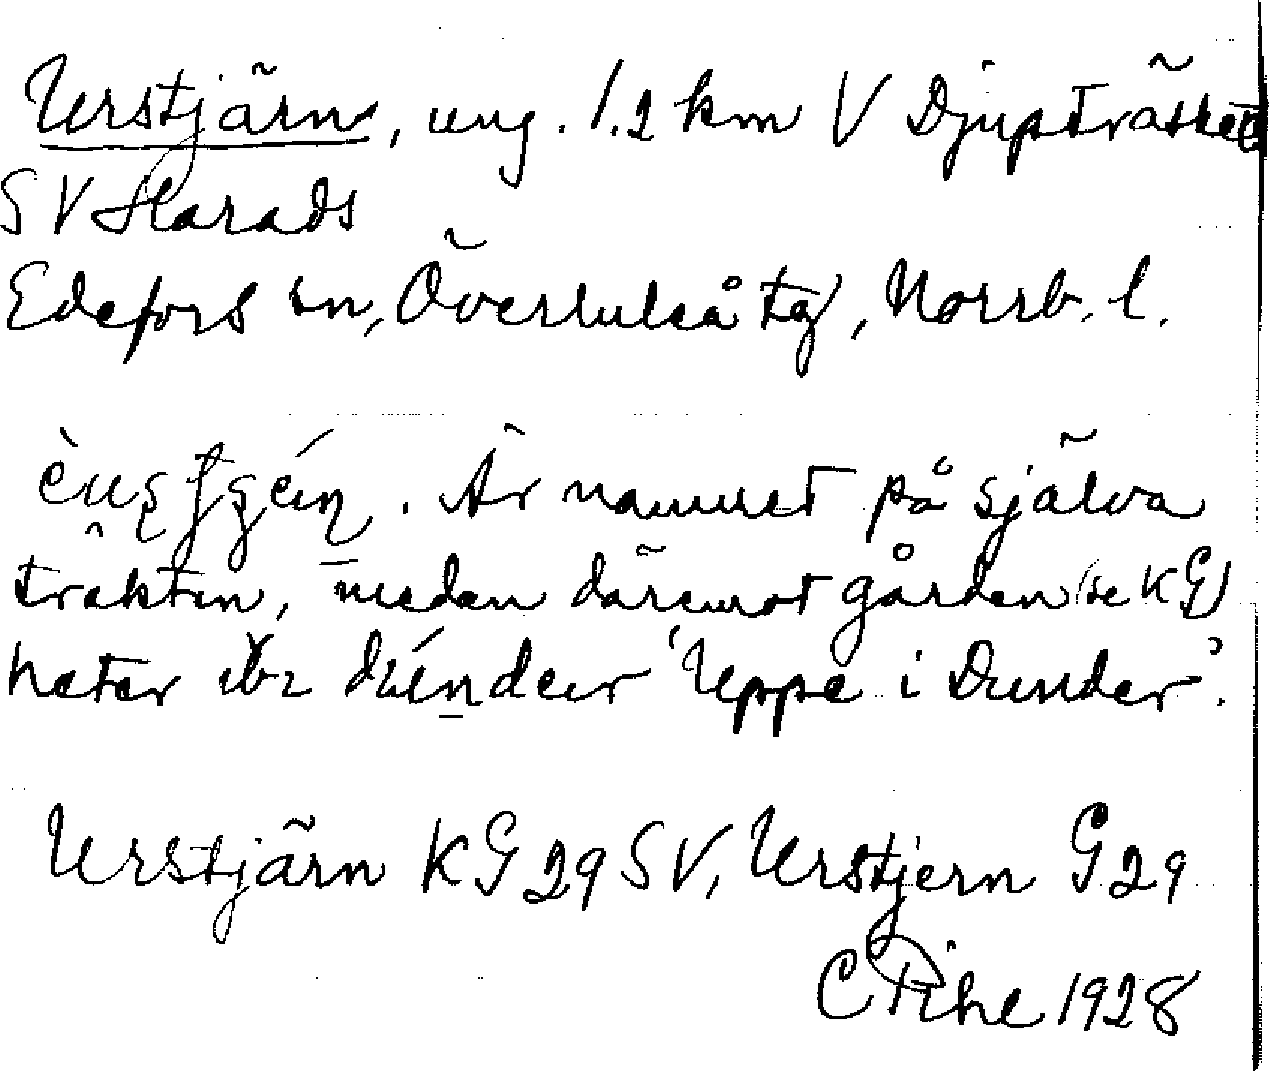 Urstjärn, ung. 1.2 km V Djupträsket
SV Harads
Edefors sn, Överluleå tg, Norrb. l.
. Är namnet på själva
trakten, medan däremot gården (se KG)
heter 'Uppe i Dunder'.
Urstjärn KG 29 SV, Urstjern G 29
C Pihe 1928